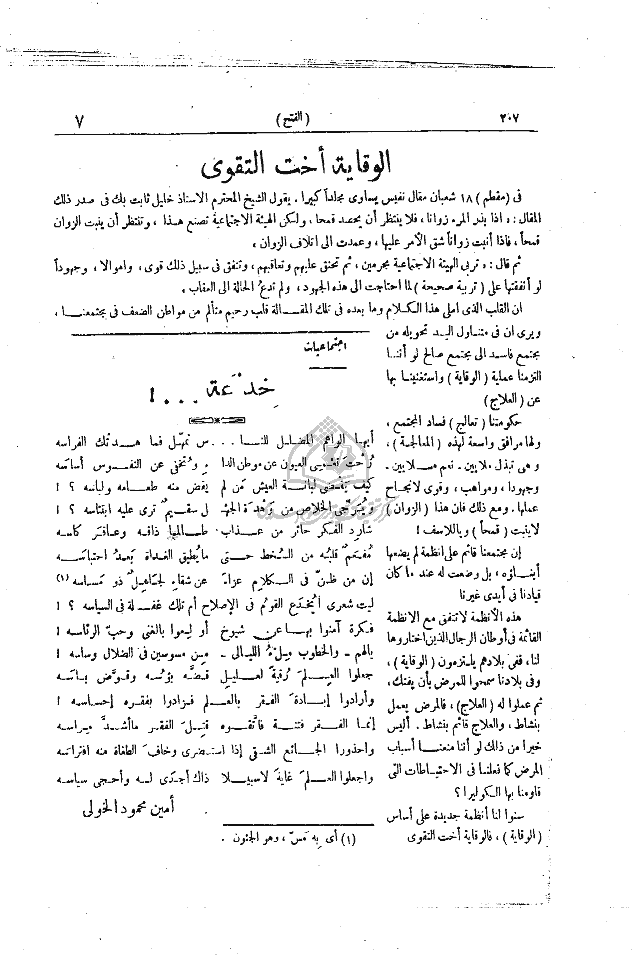 ٢٠٧
( الفتح )
٧
الوقاية أخت التقوى
فى ( مقطم ) ١٨ شعبان مقال نفيس يساوى مجلداً كبيرا . يقول الشيخ المحترم الاستاذ خليل ثابت بك فى صدر ذلك
المقال : « اذا بذر المرء زوانا ، فلا ينتظر أن يحصد قمحا ، ولكن الهيئة الاجتماعية تصنع هذا ، وتنتظر أن ينبت الزوان
قمحاً ، فاذا أنبت زواناً شق الأمر عليها ، وعمدت الى اتلاف الزوان ،
ثم قال : « تربى الهيئة الاجتماعية مجرمين ، ثم تحنق عليهم وتعاقبهم ، وتنفق فى سبيل ذلك قوى ، واموالا ، وجهوداً
لو أنفقتها على ( تربية صحيحة ) لما احتاجت الى هذه الجهود ، ولم تدع الحالة الى العقاب .
ان القلب الذى املى هذا الكلام وما بعده فى تلك المقالة قلب رحيم متألم من مواطن الضعف فى مجتمعنا ،
ويرى ان فى متناول اليد تحويله من
مجتمع فاسد الى مجتمع صالح لو أننا
التزمنا عملية ( الوقاية ) واستغنينا بها
عن ( العلاج )
حكومتنا ( تعالج ) فساد المجتمع ،
ولها مرافق واسعة لهذه ( المعالجة ) ،
وهى تبذل ملايين . نعم ملايين .
وجهودا ، ومواهب ، وقوى لانجاح
عملها . ومع ذلك فان هذا ( الزوان )
لاينبت ( قمحا ) وياللاسف !
إن مجتمعنا قائم على انظمة لم يضعها
أبناؤه ، بل وضعت له عند ما كان
قيادنا فى أيدى غيرنا
هذه الأنظمة لا تتفق مع الانظمة
القائمة فى أوطان الرجال الذين اختاروها
لنا ، ففى بلادهم يلتزمون ( الوقاية ) ،
وفى بلادنا سمحوا للمرض بأن يفتك ،
ثم عملوا له ( العلاج ) ، فالمرض يعمل
بنشاط ، والعلاج قائم بنشاط . أليس
خيرا من ذلك لو أننا منعنا أسباب
المرض كما فعلنا فى الاحتياطات التى
قاومنا بها الكوليرا ؟
سنوا لنا أنظمة جديدة على أساس
( الوقاية ) ، فالوقاية أخت التقوى
اجتماعيات
خدعة . . . !
أيها الواهم المضلل للنا . . . س تمهل فما هدتك الفراسه
رحت تقصى العيون عن موطن الدا ء وتخفى عن النفوس أساسه
كيف يقضى لبانة العيش من لم يقض منه طعامه ولباسه ؟ !
ويرتجى الخلاص من وهدة الجهـ ل سقيم ترى عليه ابتئاسه ؟ !
شارد الفكر حائر من عذاب طالما ذاقه وعاقر كاسه
مفعم قلبه من السخط حتى مايطيق الغداة بعد احتباسه
إن من ظن فى الكلام عزاء عن شقاء لجاهل ذو مساسه (١)
ليت شعرى أيخدع القوم فى الإصلاح أم تلك غفلة فى السياسه ؟ !
فكرة آمنوا بها عن شيوخ أو ليموا بالغى وحب الرئاسه !
بالهم - والخطوب ملء الليالى - من مسوسين فى الضلال وساسه !
جعلوا العلم رقية لعليل قضه بؤسه وقوض باسه
وأرادوا إبادة الفقر بالعلم فزادوا بفقره إحساسه !
إنما الفقر فتنة فاتقوه قتل الفقر ماأشد مراسه
واحذورا الجائع الشقى إذا استضرى وخاف الطغاة منه افتراسه
واجعلوا العلم غاية لاسبيلا ذاك أجدى له وأحجى سياسه
أمين محمود الخولى
(١) أى به مسّ ، وهو الجنون .